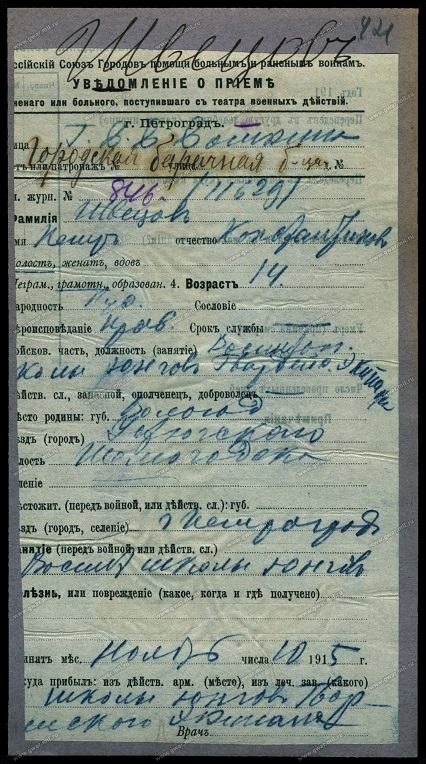 Швецовъ 421
ссійскій Союзъ Городовъ помощи больнымъ и раненымъ воинамъ.
УВѢДОМЛЕНІЕ О ПРІЕМѢ
ненаго или больного, поступившаго съ театра военныхъ дѣйствій.
г. Петроградъ.
Городская барачная б-ца
н. журн. № 846
Фамилія Швецовъ
мя Петръ отчество Константинов
олостъ, женатъ, вдовъ
Неграм., грамотн., образован. 4. Возрастъ 14.
ародность Рус. Сословіе
ѣроисповѣданіе Прав. Срокъ службы
ойсков. часть, должность (занятіе) Воспитан.
школы юнговъ Гвардейс. Экипажа
ѣйств. сл., запасной, ополченец, доброволец
ѣсто родины: губ. Вологод
ѣздъ (городъ)
лость
еленіе
ѣстожит. (передъ войной, или дѣйств. сл.): губ.
ѣздъ (городъ, селеніе) г. Петроградъ
анятіе (передъ войной, или дѣйств. сл.)
Воспит. школы юнговъ
олѣзнь, или поврежденіе (какое, когда и гдѣ получено)
инятъ мѣс. Ноябрь числа 10 1915 г.
куда прибылъ: изъ дѣйств. арм. (мѣсто), изъ леч. зав. (какого)
школы юнговъ Гвар-
дейского Экипажа
Врачъ